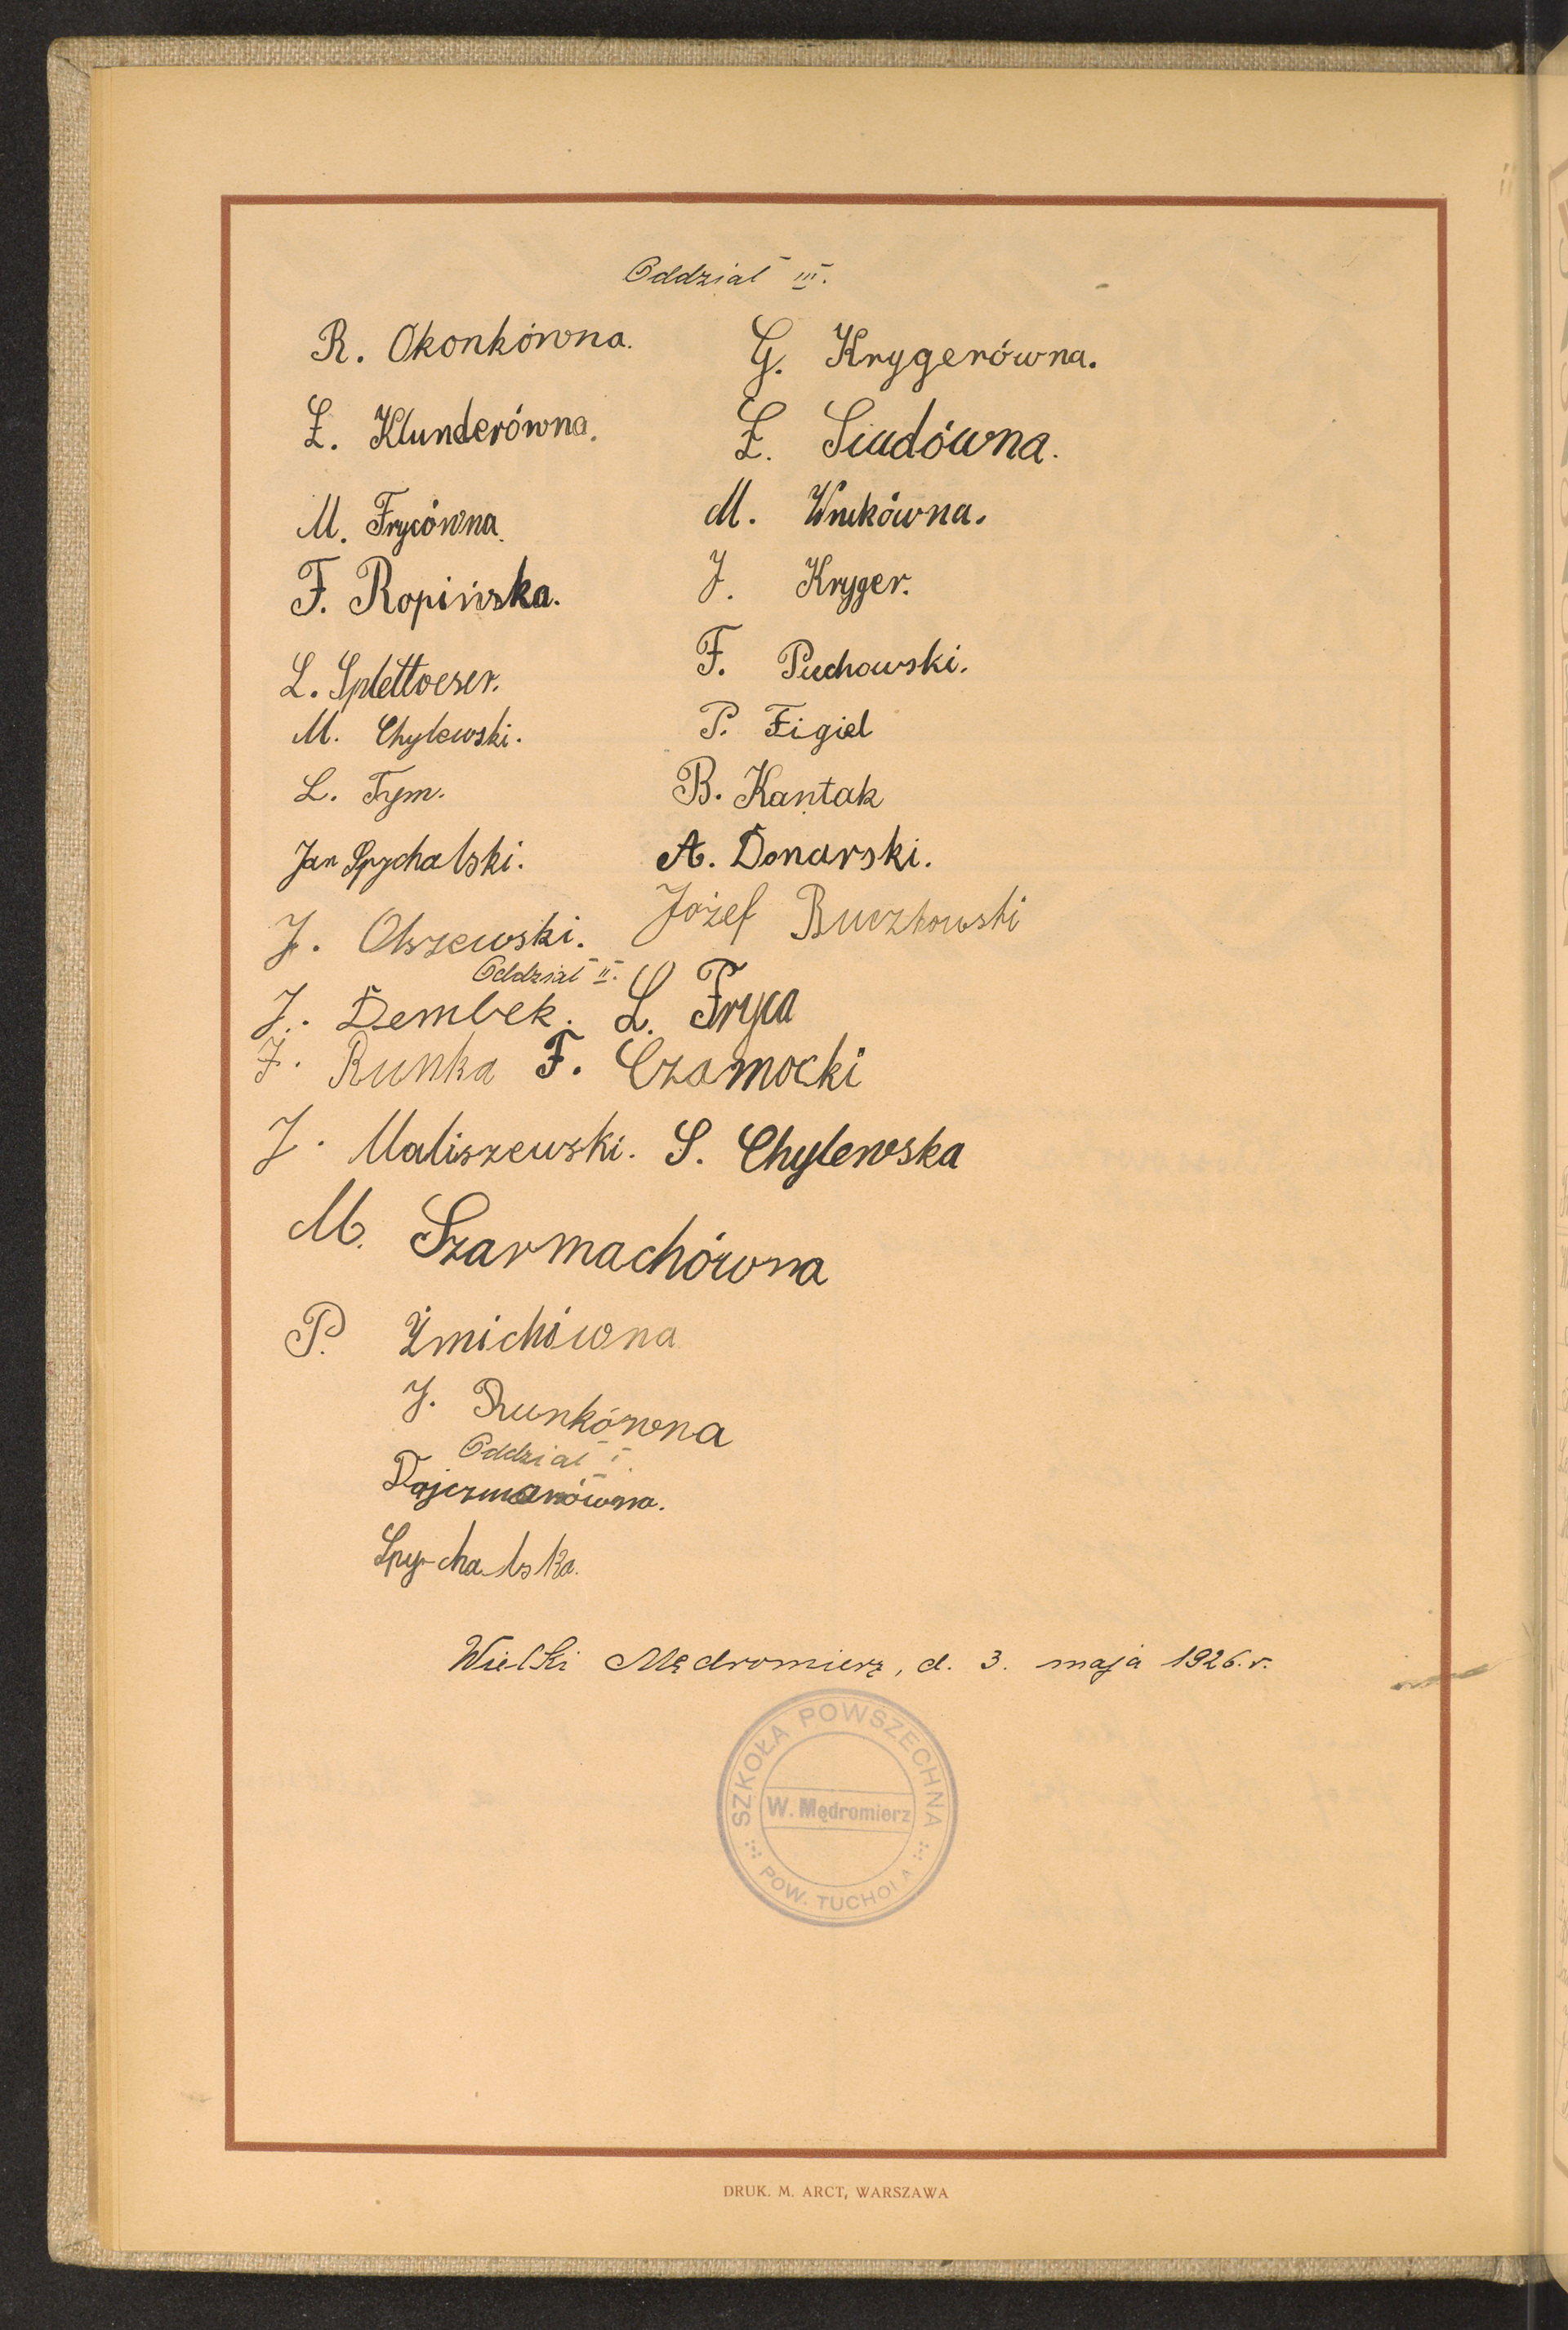 Oddział III.
R. Okonkówna.
G. Krygerówna.
Ł. Klunderówna.
Ł. Siudówna.
M. Frycówna.
M. Wnukówna.
F. Ropińska.
J. Kryger.
L. Splettoeser.
F. Puchowski.
M. Chylewski.
P. Figiel
L. Tym.
B. Kantak
Jan Spychalski.
A. Donarski.
J. Olszewski.
Józef Buczkowski
Oddział II.
J. Dembek.
L. Fryca
J. Runka
F. Czarnocki
J. Maliszewski.
S. Chylewska
M. Szarmachówna
P. Żmichówna
J. Runkówna
Oddział I.
Dajczmanówna.
Spy-chalska.
Wielki Mędromierz, d. 3. maja 1926. r.
SZKOŁA POWSZECHNA
W. Mędromierz
POW. TUCHOLA
DRUK. M. ARCT, WARSZAWA